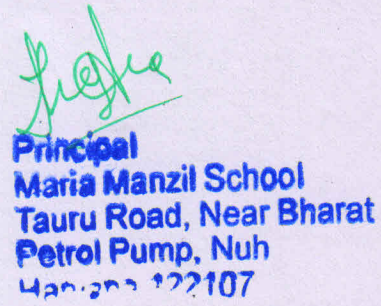 Principal
Maria Manzil School
Tauru Road, Near Bharat
Petrol Pump, Nuh
Haryana 122107